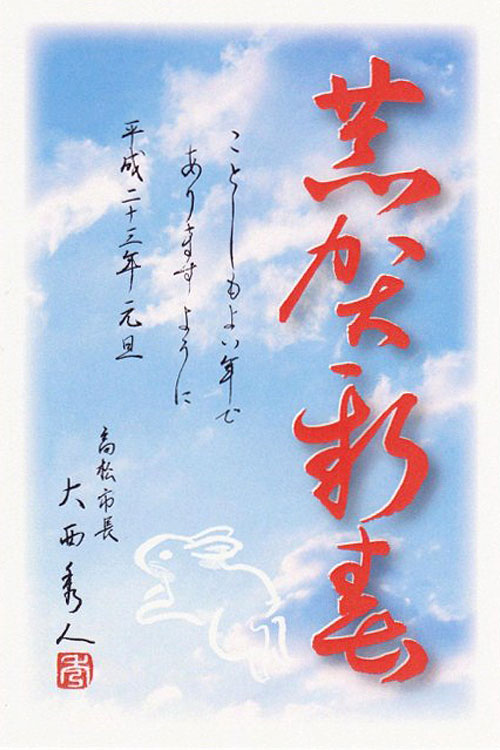 恭賀新春
ことしもよい年で
ありますように
平成二十三年 元旦
高松市長
大西秀人
秀